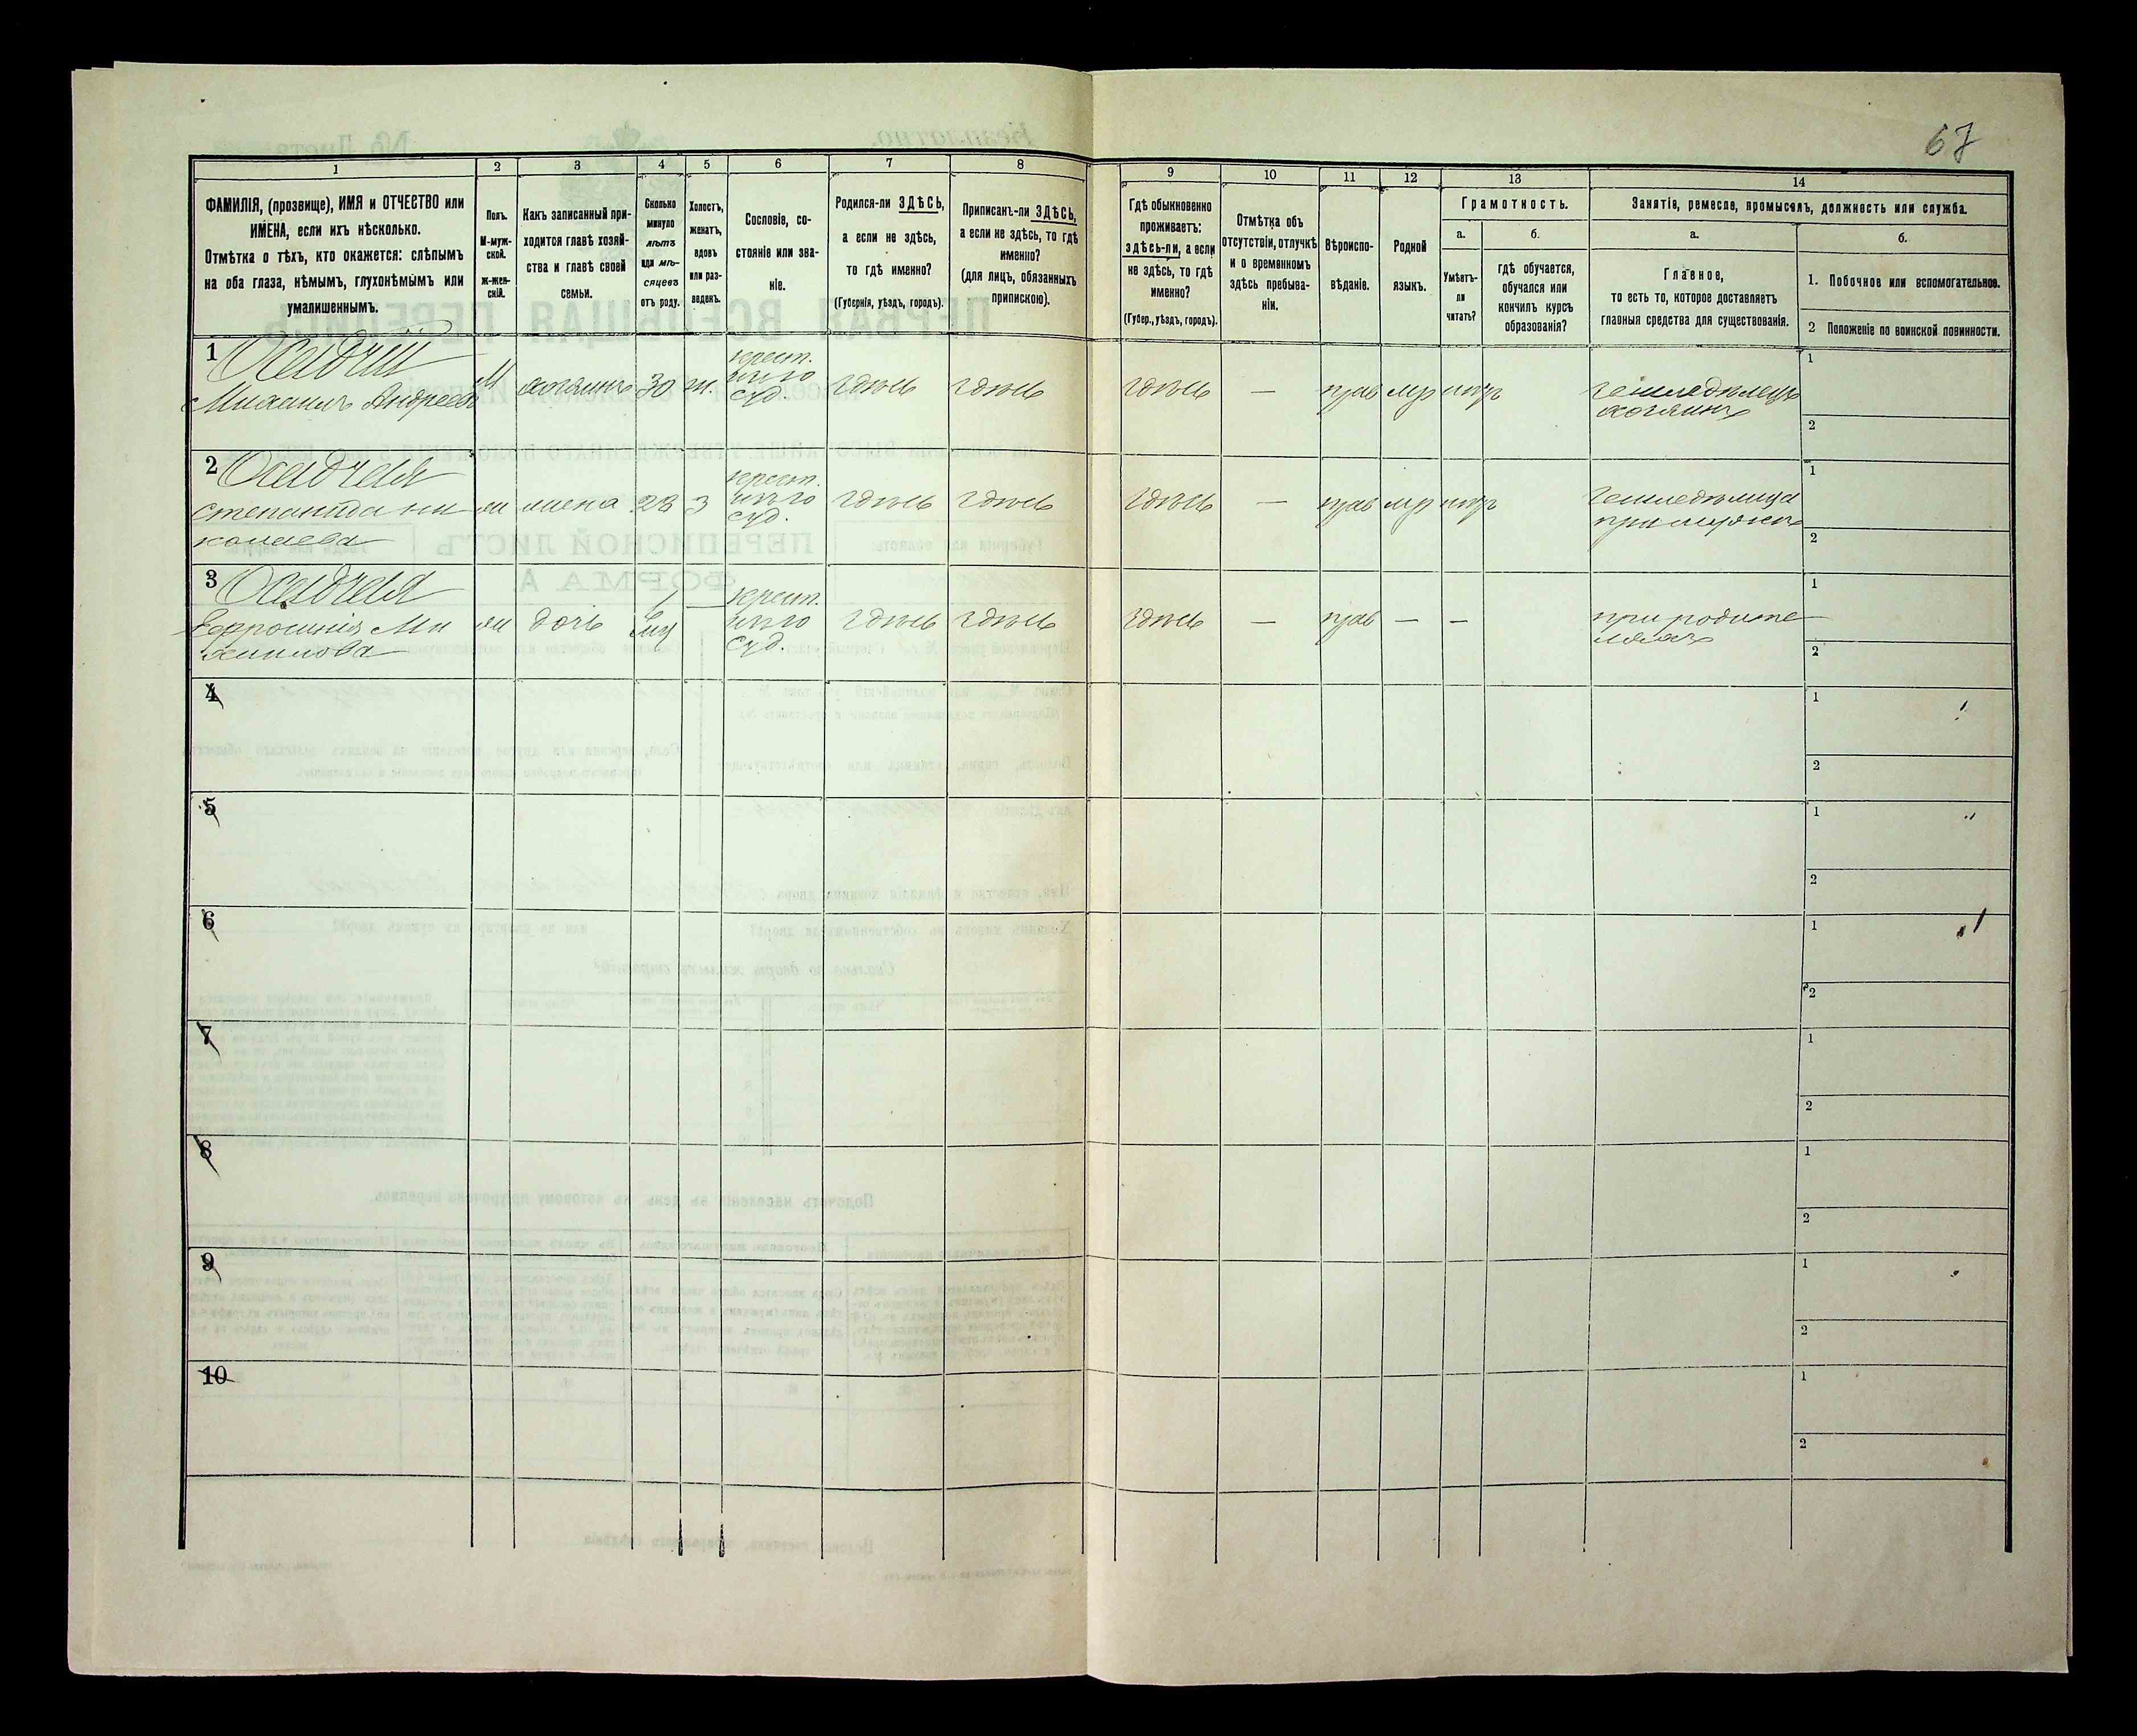 67
1 2 3 4 5 6 7 8 9 10 11 12 13 14
ФАМИЛІЯ, (прозвище), ИМЯ и ОТЧЕСТВО или
ИМЕНА, если ихъ нѣсколько.
Отмѣтка о тѣхъ, кто окажется: слѣпымъ
на оба глаза, нѣмымъ, глухонѣмымъ или
умалишеннымъ.
Полъ.
М-муж-
ской.
ж-жен-
скій.
Какъ записанный при-
ходится главѣ хозяй-
ства и главѣ своей
семьи.
Сколько
минуло
лѣтъ
или мѣ-
сяцевъ
отъ роду.
Холостъ,
женатъ,
вдовъ
или раз-
веденъ.
Сословіе, со-
стояніе или зва-
ніе.
Родился-ли ЗДѢСЬ,
а если не здѣсь,
то гдѣ именно?
(Губернія, уѣздъ, городъ).
Приписанъ-ли ЗДѢСЬ,
а если не здѣсь, то гдѣ
именно?
(для лицъ, обязанныхъ
припискою).
Гдѣ обыкновенно
проживаетъ:
здѣсь-ли, а если
не здѣсь, то гдѣ
именно?
(Губер., уѣздъ, городъ).
Отмѣтка объ
отсутствіи, отлучкѣ
и о временномъ
здѣсь пребыва-
ніи.
Вѣроиспо-
вѣданіе.
Родной
языкъ.
Грамотность.
а.
Умѣетъ-
ли
читать?
б.
гдѣ обучается,
обучался или
кончилъ курсъ
образованія?
Занятіе, ремесло, промыселъ, должность или служба.
а.
Главное,
то есть то, которое доставляетъ
главныя средства для существованія.
б.
1. Побочное или вспомогательное.
2 Положеніе по воинской повинности.
1 Осадчій
Михаилъ Андреевъ
М
хозяинъ
30
ж.
крест.
суд.
здѣсь
здѣсь
здѣсь
—
прав
мр
нѣтъ
земледѣлецъ
хозяинъ
1
2
2 Осадчая
Степанида Ни
колаева
ж
жена
28
З
крест.
суд.
здѣсь
здѣсь
здѣсь
—
прав
мр
нѣтъ
земледѣлица
при мужѣ
1
2
3 Осадчая
Ефросинія Ми
хаилова
ж
дочь
—
крест.
суд.
здѣсь
здѣсь
здѣсь
—
прав
—
—
при родите
ляхъ
1
2
4
1
2
5
1
2
6
1
2
7
1
2
8
1
2
9
1
2
10
1
2